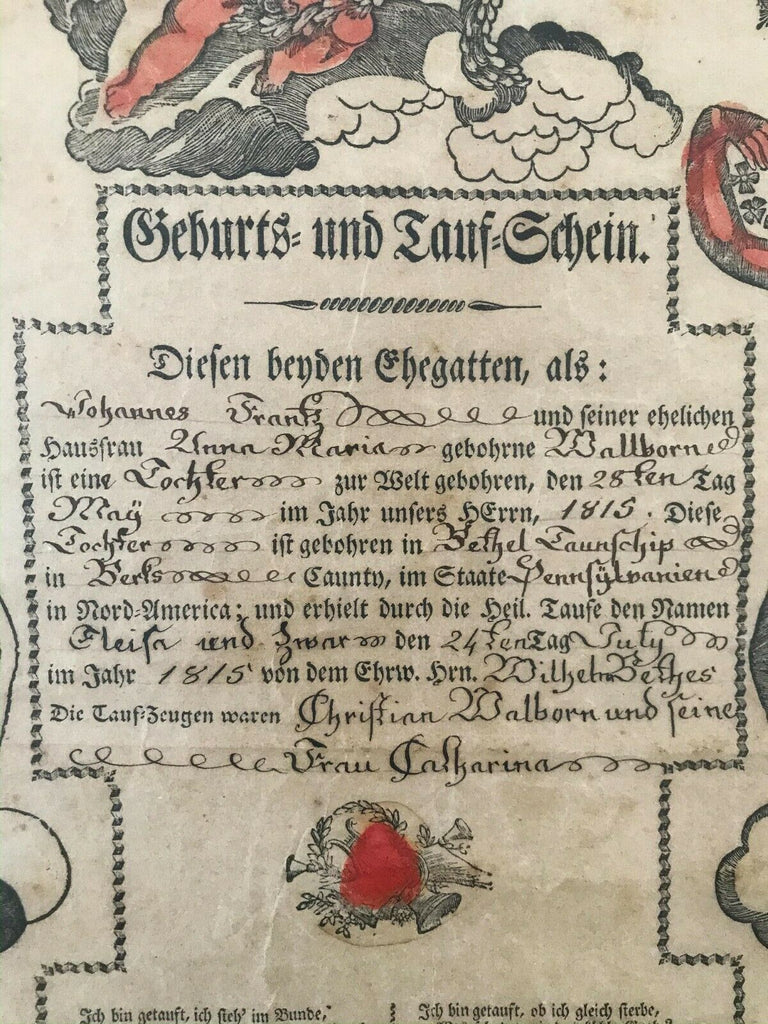 Geburts- und Tauf-Schein.
Diesen beyden Ehegatten, als:
Johannes Frantz und seiner ehelichen
Hausfrau Anna Maria gebohrne Wallborn
ist eine Tochter zur Welt gebohren, den 28ten Tag
May im Jahr unsers HErrn, 1815. Diese
Tochter ist gebohren in Bethel Taunschip
in Berks Caunty, im Staate Pennsylvanien
in Nord-America; und erhielt durch die Heil. Taufe den Namen
und zwar den 24ten Tag July
im Jahr 1815 von dem Ehrw. Hrn. Wilhelm Bethes
Die Tauf-Zeugen waren Christian Walborn und seine
Frau Catharina
Ich bin getauft, ich steh' im Bunde,
Ich bin getauft, ob ich gleich sterbe,